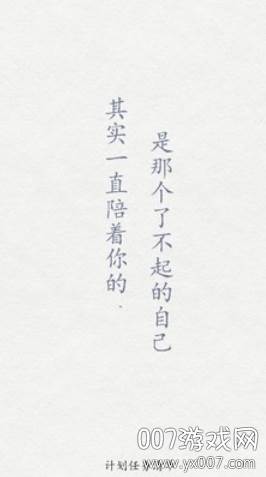 其实一直陪着你的.
是那个了不起的自己
007游戏网
www.yx007.com
计划任